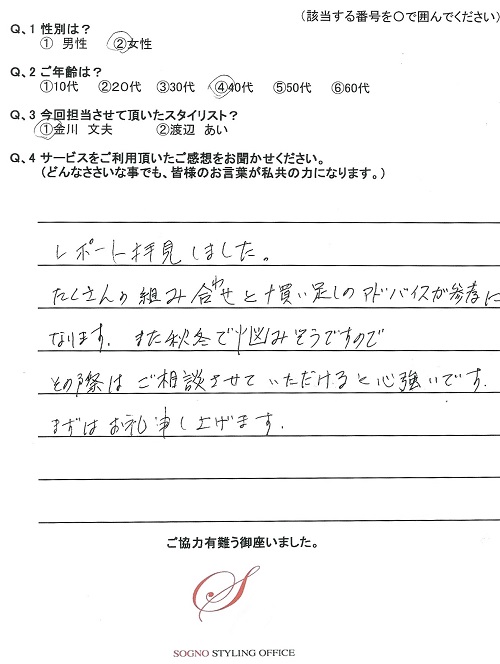 （該当する番号を〇で囲んでください）
Q、1 性別は？
① 男性 ②女性
Q、2 ご年齢は？
①10代 ②20代 ③30代 ④40代 ⑤50代 ⑥60代
Q、3 今回担当させて頂いたスタイリスト？
①金川 文夫 ②渡辺 あい
Q、4 サービスをご利用頂いたご感想をお聞かせください。
（どんなささいな事でも、皆様のお言葉が私共の力になります。）
レポート拝見しました。
たくさんの組み合わせと買い足しのアドバイスが参考に
なります。また秋冬で悩みそうですので
その際はご相談させていただけると心強いです。
まずはお礼申し上げます。
ご協力有難う御座いました。
S
SOGNO STYLING OFFICE